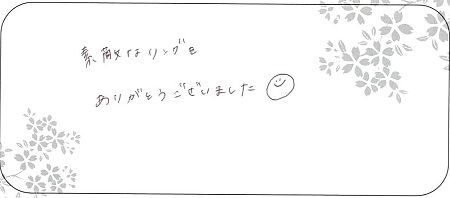 素敵なリングを
ありがとうございました